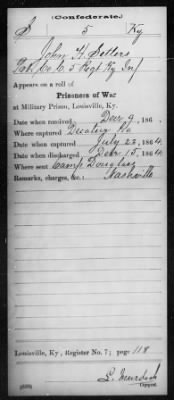 (Confederate.)
S 5 Ky
John H. Sellers
Pvt, Co. C, 5 Regt Ky Inf
Appears on a roll of
Prisoners of War
at Military Prison, Louisville, Ky.
Date when received, Decr 9, 186
Where captured Decatur Ga
Date when captured July 22, 1864
Date when discharged 15, 1864
Where sent Camp Douglas
Remarks, charges, &c.: Nashville
Louisville, Ky., Register No. 7; page 118
L. Murdoch
Copyist.